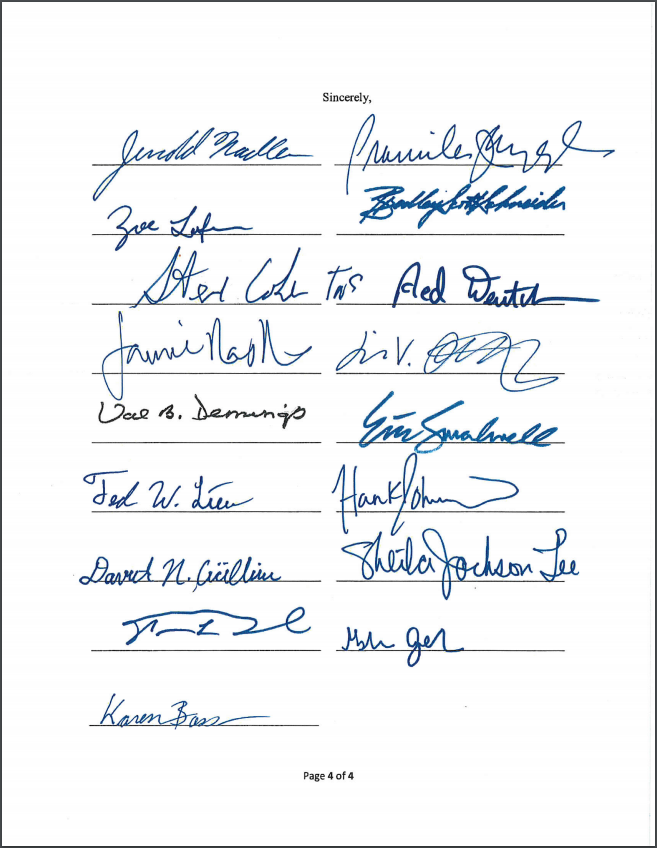 Sincerely,
Jerrold Nadler Pramila Jayapal
Zoe Lofgren Bradley Scott Schneider
Steve Cohen TN9 Ted Deutch
Jamie Raskin
Val B. Demings Eric Swalwell
Ted W. Lieu Hank Johnson
David N. Cicilline Sheila Jackson Lee
Karen Bass
Page 4 of 4